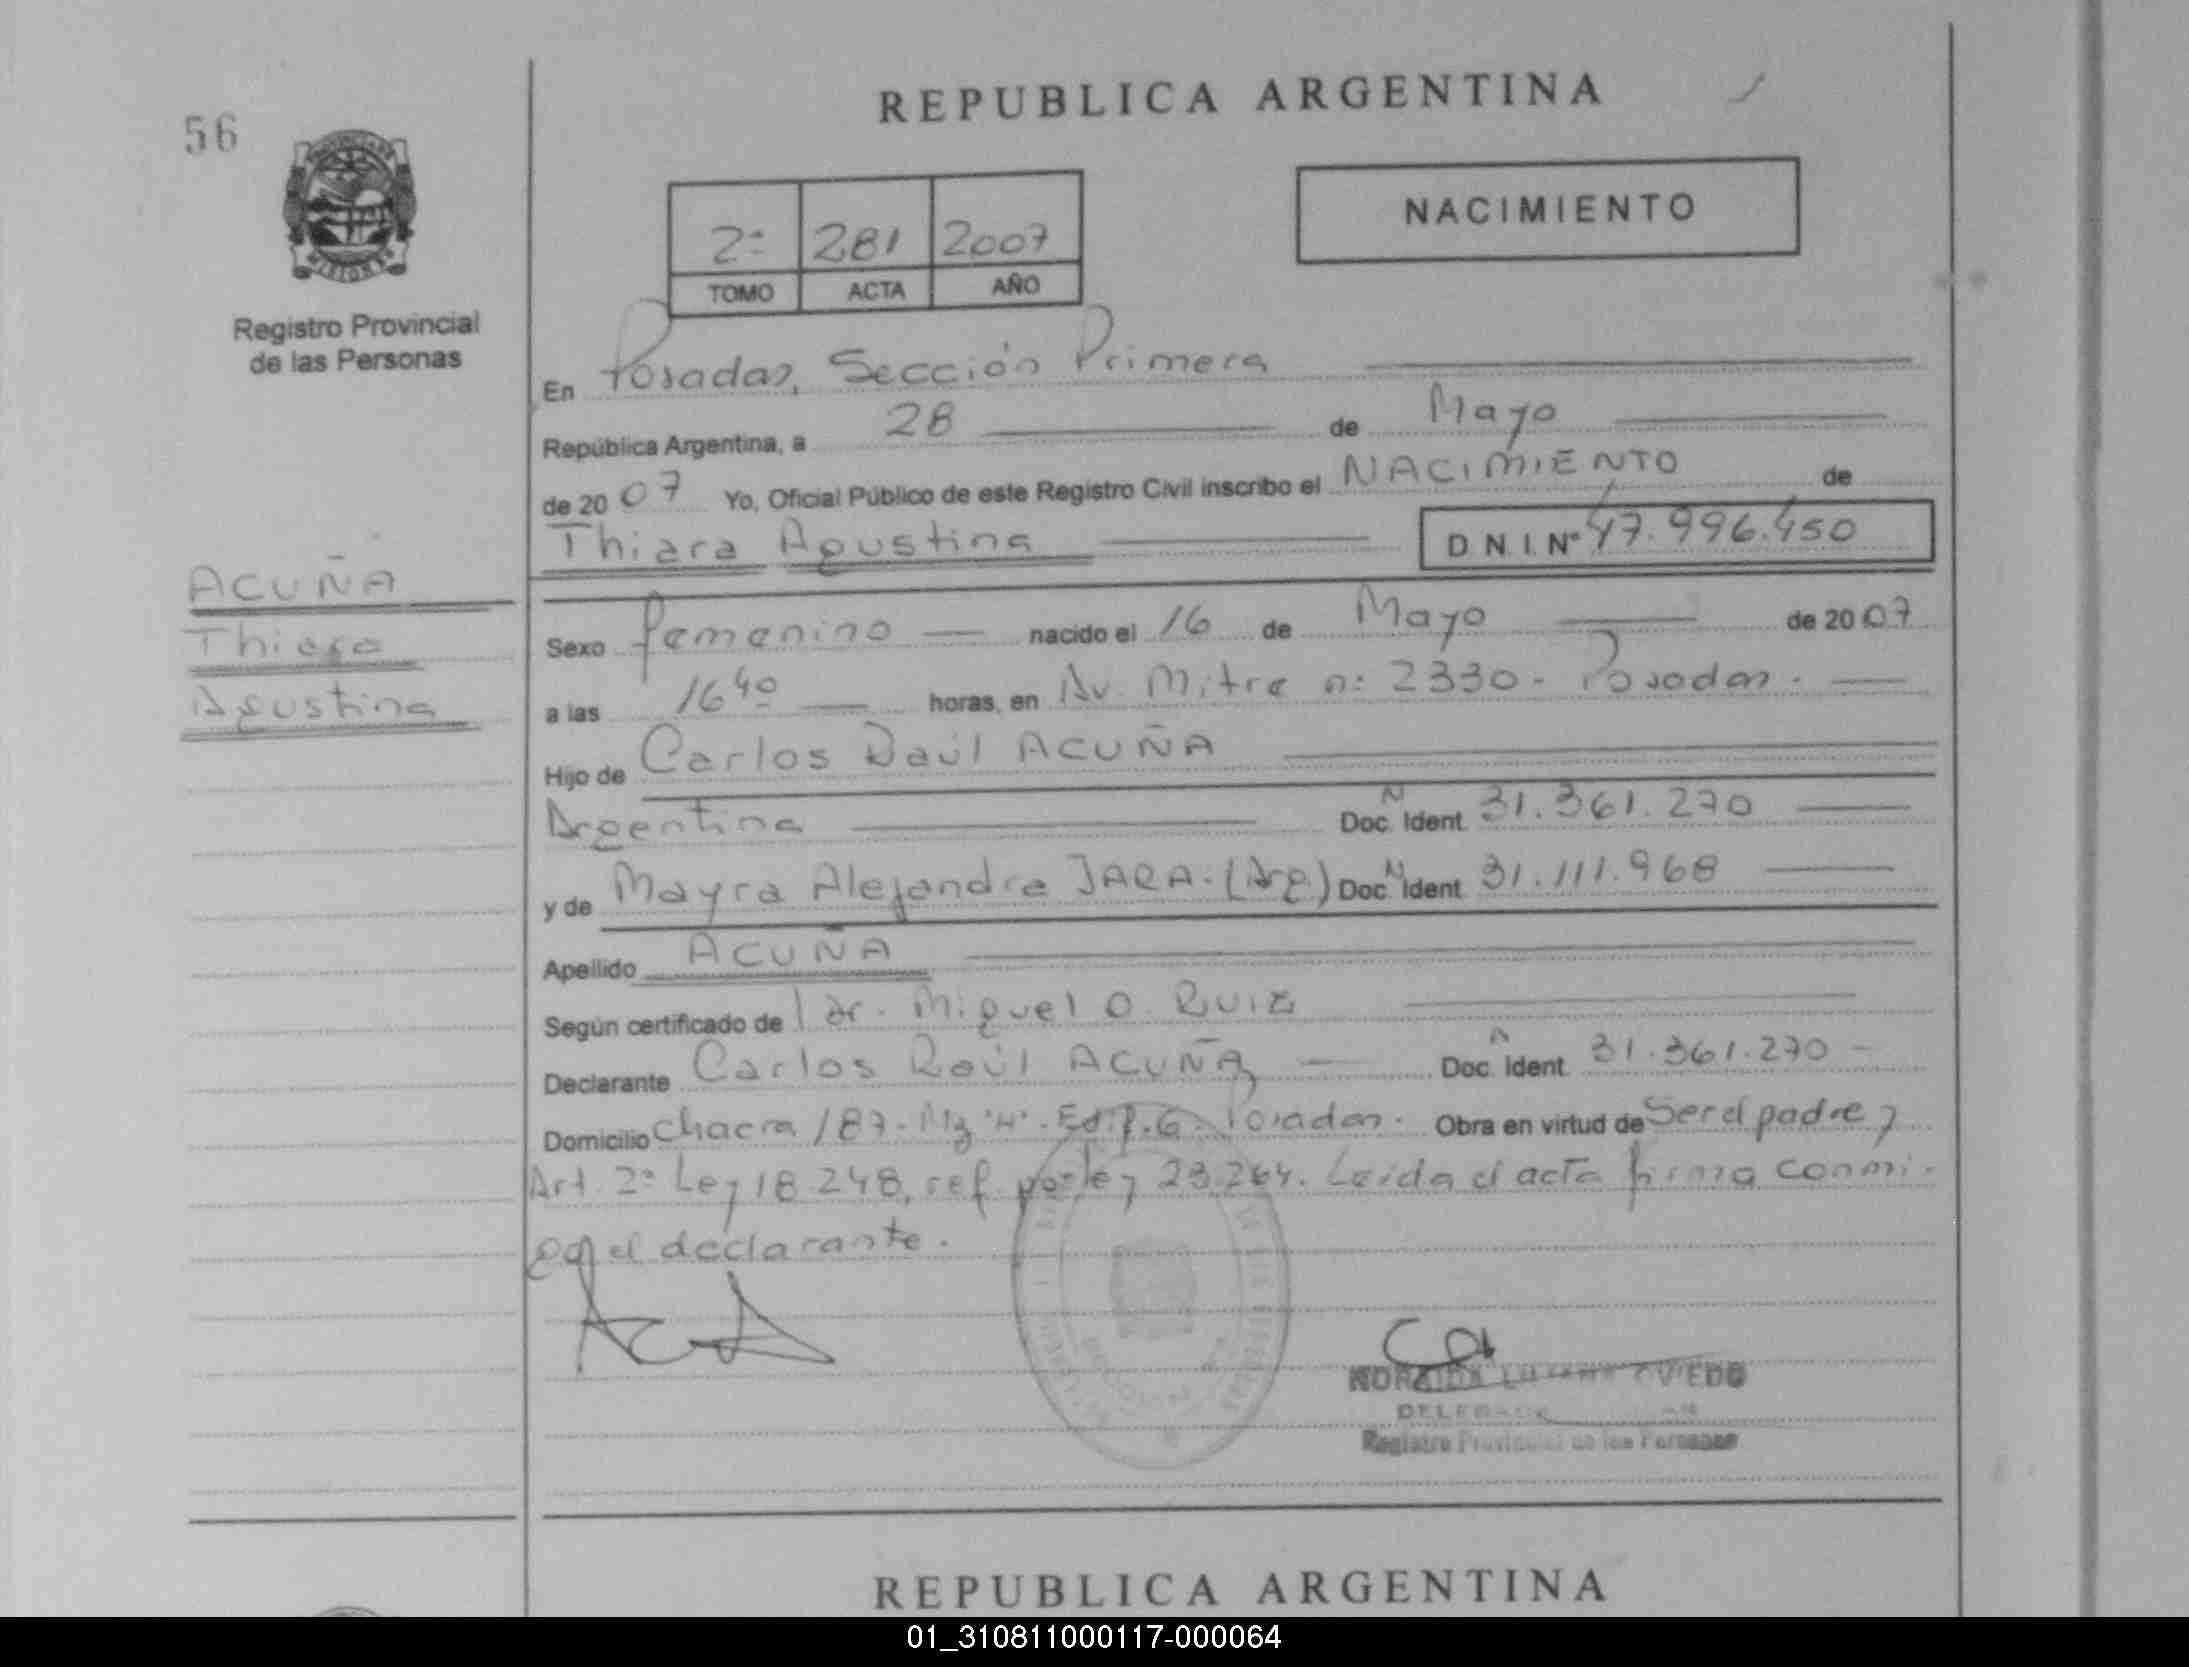 56
REPUBLICA ARGENTINA
PROVINCIA DE
MISIONES
Registro Provincial
de las Personas
2º 281 2007
TOMO ACTA AÑO
NACIMIENTO
En Posadas, Sección Primera
República Argentina, a 28 de Mayo
de 2007 Yo, Oficial Público de este Registro Civil inscribo el NACIMIENTO de
Thiara Agustina D.N.I. Nº 47.996.450
ACUÑA
Thiara
Agustina
Sexo femenino nacido el 16 de Mayo de 2007
a las 16 40 horas, en Av. Mitre n: 2330 - Posadas.
Hijo de Carlos Raúl ACUÑA
Argentina Doc. N Ident. 31.361.270
y de Mayra Alejandra JARA. (Arg.) Doc. N Ident. 31.111.968
Apellido ACUÑA
Según certificado de Dr. Miguel O. RUIZ
Declarante Carlos Raúl ACUÑA Doc. N Ident. 31.361.270 -
Domicilio Chacra 187 - Mz "H" - Edif. 6 - Posadas. Obra en virtud de Ser el padre y
Art. 2º Ley 18.248, ref. por ley 23.264. Leída el acta firma conmi-
go el declarante.
OVIEDO
Registro Provincial de las Personas
REPUBLICA ARGENTINA
01_310811000117-000064